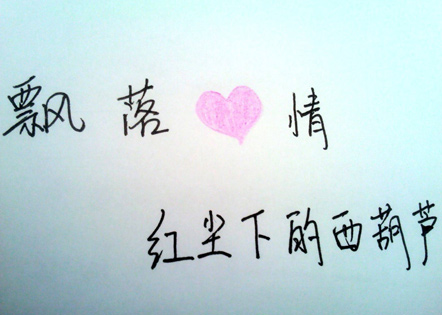 飘落情
红尘下的西葫芦